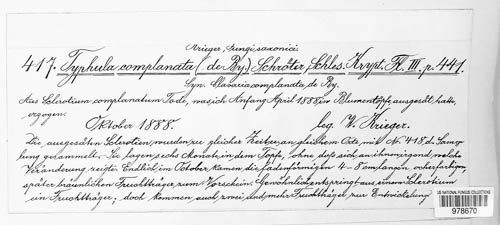 Krieger, fungi saxonici
417. Typhula complanata (de By.) Schröter, Schles. Krypt. Fl. III, p. 441.
Syn. Clavaria complanata, de By.
Aus Sclerotium complanatum Tode, was ich Anfang April 1888 in Blumentöpfe ausgesät hatte,
erzogen.
Oktober 1888. leg. W. Krieger.
Die ausgesäten Sclerotien, wurden zu gleicher Zeit, an gleichem Orte, mit Nr 418 d. Samm-
lung gesammelt. Sie lagen sechs Monate in dem Topfe, ohne daß sich an ihnen irgend welche
Veränderung zeigte. Endlich im Oktober kamen die fadenförmigen 4-8 cm langen ocherfarbigen,
später bräunlichen Fruchtträger zum Vorschein. Gewöhnlich entspringt aus einem Sclerotium
ein Fruchtträger; doch kommen auch zwei und mehr Fruchtträger zur Entwickelung
US NATIONAL FUNGUS COLLECTIONS
978670